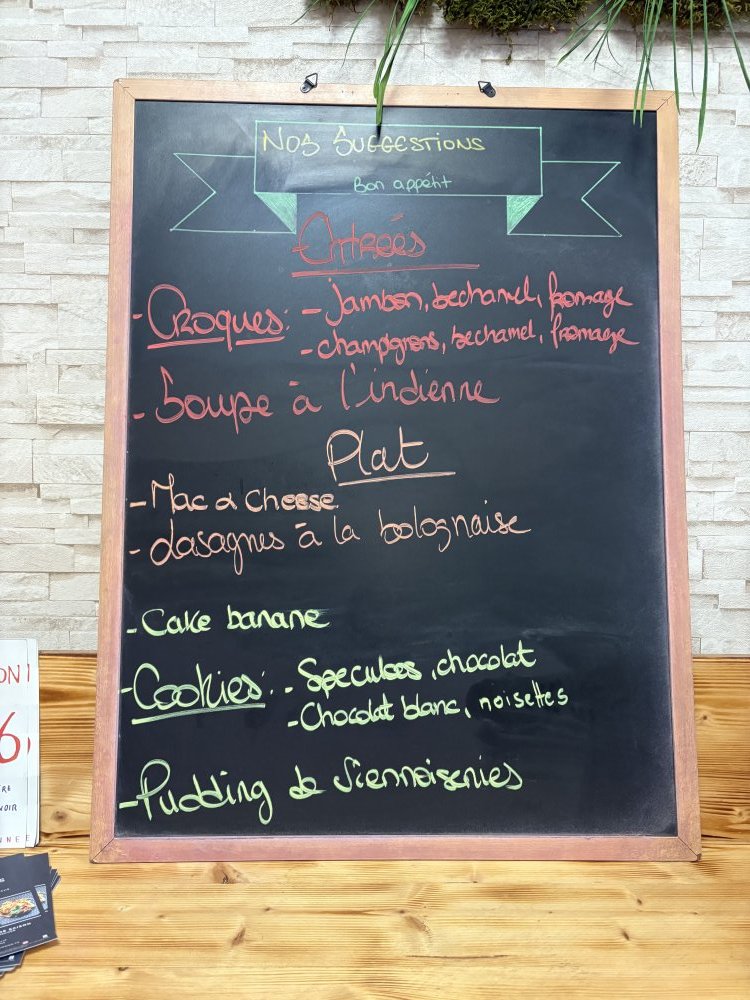 Nos Suggestions
Bon appétit
Entrées
- Croques: - jambon, bechamel, fromage
- champignons, bechamel, fromage
- Soupe à l'indienne
Plat
- Mac & Cheese
- Lasagnes à la bolognaise
- Cake banane
- Cookies: - Speculoos, chocolat
- Chocolat blanc, noisettes
- Pudding de Viennoiseries
ON
6